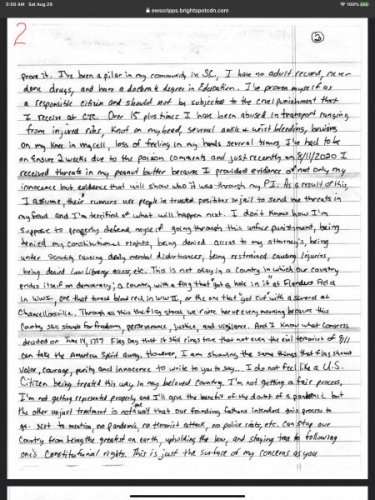 5:50 AM Sat Aug 29
100%
ewscripps.brightspotcdn.com
2
prove it. I've been a pilar in my community in SC, I have no adult record, never
done drugs, and have a doctorate degree in Education. I've proven myself as
a responsible citizen and should not be subjected to the cruel punishment that
I receive at CJC. Over 15 plus times I have been abused in transport ranging
from injured ribs, knot on my head, several ankle & wrist bleeding, bruising
on my knee in my cell, loss of feeling in my hands several times, I've had to be
on Ensure 2 weeks due to the poison comments and just recently on 8/11/2020 I
received threats in my peanut butter because I provided evidence of not only my
innocence but evidence that will show who it was through my P.I. As a result of this,
I assume, their runners use people in trusted positions in jail to send me threats in
my food and I'm terrified of what will happen next. I don't know how I'm
suppose to properly defend myself going through this unfair punishment, being
denied my constitutional rights, being denied access to my attorney's, being
under scrutiny causing daily mental disturbances, being restrained causing injuries,
being denied law library access, etc. This is not okay in a country in which our country
prides itself on democracy; a country with a flag that "got a hole in it" at Flanders Field
in WWI, one that turned blood red in WWII, or the one that "got cut" with a sword at
Chancellorsville. Through all this the flag stood, we raise her up every morning because this
Country still stands for freedom, perseverance, justice, and vigilance. And I know what Congress
decided on June 14, 1777 Flag Day that it still rings true that not even the evil terrorist of 9/11
can take the American Spirit away. However, I am showing the same things that flag shows
valor, courage, purity and innocence to write to you to say... I do not feel like a U.S.
Citizen being treated this way in my beloved Country. I'm not getting a fair process,
I'm not getting represented properly and I'll give the benefit of the doubt of a pandemic but
the other unjust treatment is not what our founding fathers intended this process to
go. Not to mention, no pandemic, no terrorist attack, no police state, etc. can stop our
Country from being the greatest on earth, upholding the law, and staying true to following
one's Constitutional rights. This is just the surface of my concerns as you